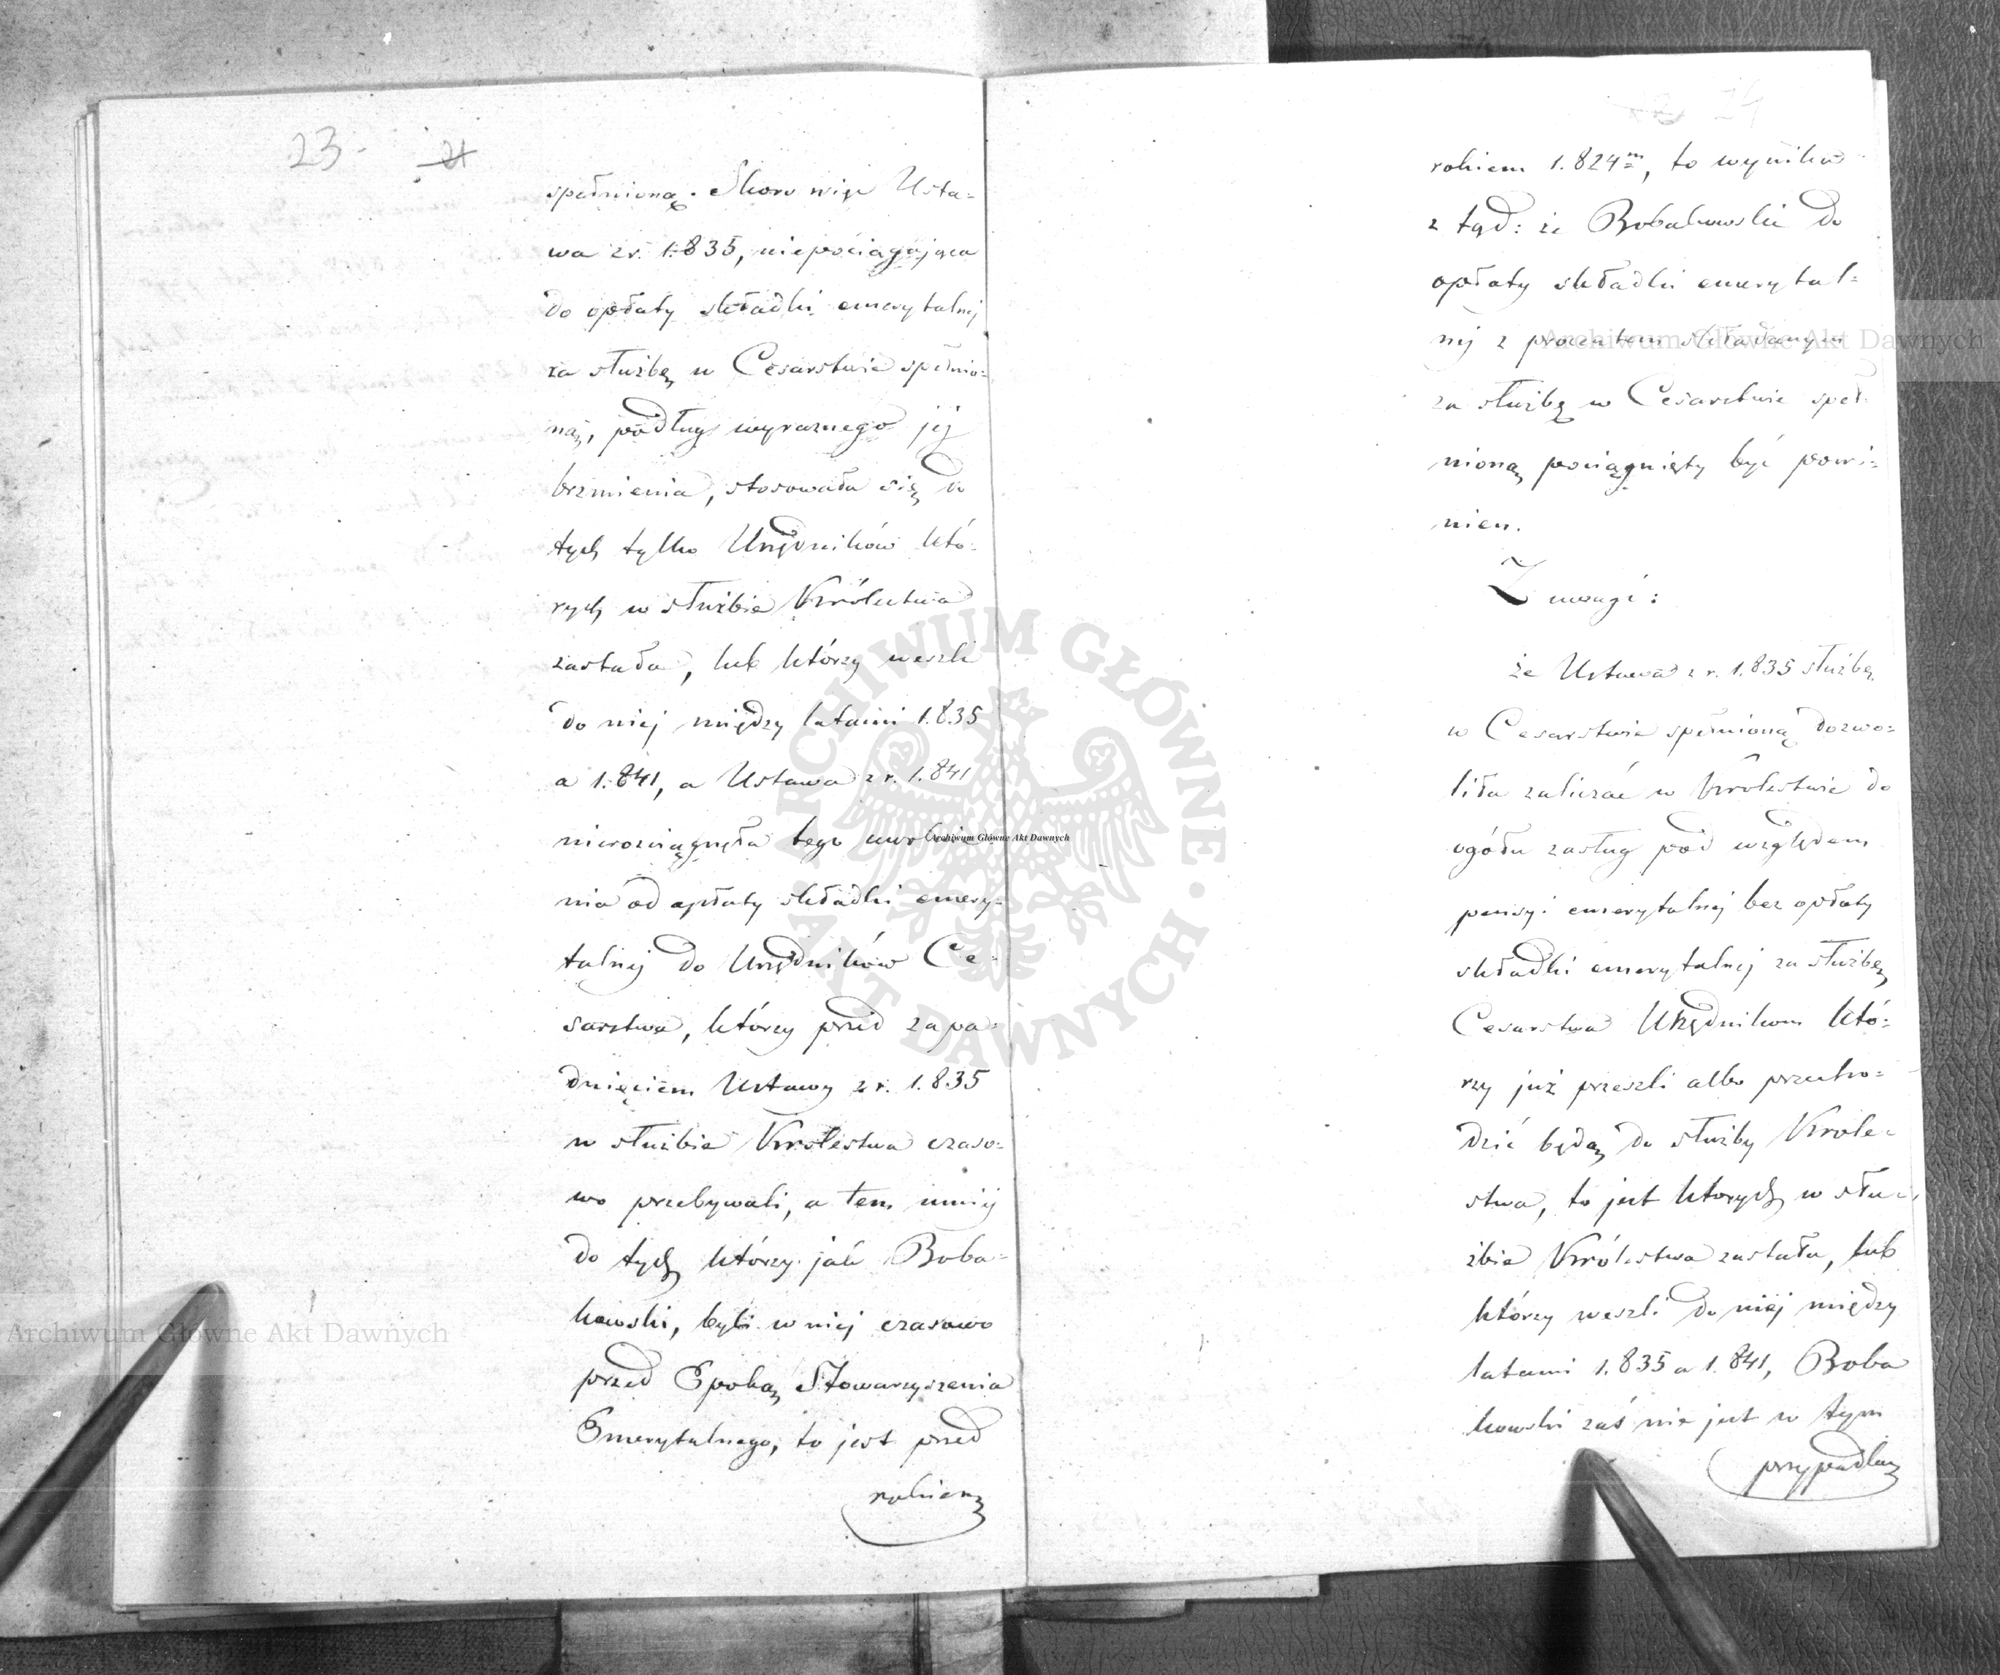 23.
21
spełnioną. Skoro więc Usta-
wa z r. 1.835, niepociągająca
do opłaty składki emerytalnej
za służbę w Cesarstwie spełnio-
ną, podług wyraznego jej
brzmienia, stosowała się do
tych tylko Urzędników któ-
rych w służbie Królestwa
zastała, lub którzy weszli
do niej między latami 1.835
a 1.841, a Ustawa z r. 1.841
nierozciągnęła tego uwolnie-
nia od opłaty składki emery-
talnej do Urzędników Ce-
sarstwa, którzy przed zapa-
dnięciem Ustawy z r. 1.835
w służbie Królestwa czaso-
wo przebywali, a tem mniej
do tych którzy jak Boba-
kowski, byli w niej czasowo
przed Epoką Stowarzyszenia
Emerytalnego, to jest przed
rokiem
24
rokiem 1.824m, to wynika
z tąd: że Bobakowski do
opłaty składki emerytal-
nej z procentem składanym
za służbę w Cesarstwie speł-
nioną pociągnięty być powi-
nien.
Z uwagi:
że Ustawa z r. 1.835 służbę
w Cesarstwie spełnioną dozwo-
liła zaliczać w Królestwie do
ogółu zasług pod względem
pensyi emerytalnej bez opłaty
składki emerytalnej za służbę
Cesarstwa Urzędnikom któ-
rzy już przeszli albo przecho-
dzić będą do służby Króle-
stwa, to jest których w słu-
żbie Królestwa zastała, lub
którzy weszli do niej między
latami 1.835 a 1.841, Boba
kowski zaś nie jest w tym
przypadku
Archiwum Główne Akt Dawnych
Archiwum Główne Akt Dawnych
Archiwum Główne Akt Dawnych
ARCHIWUM GŁÓWNE
AKT DAWNYCH